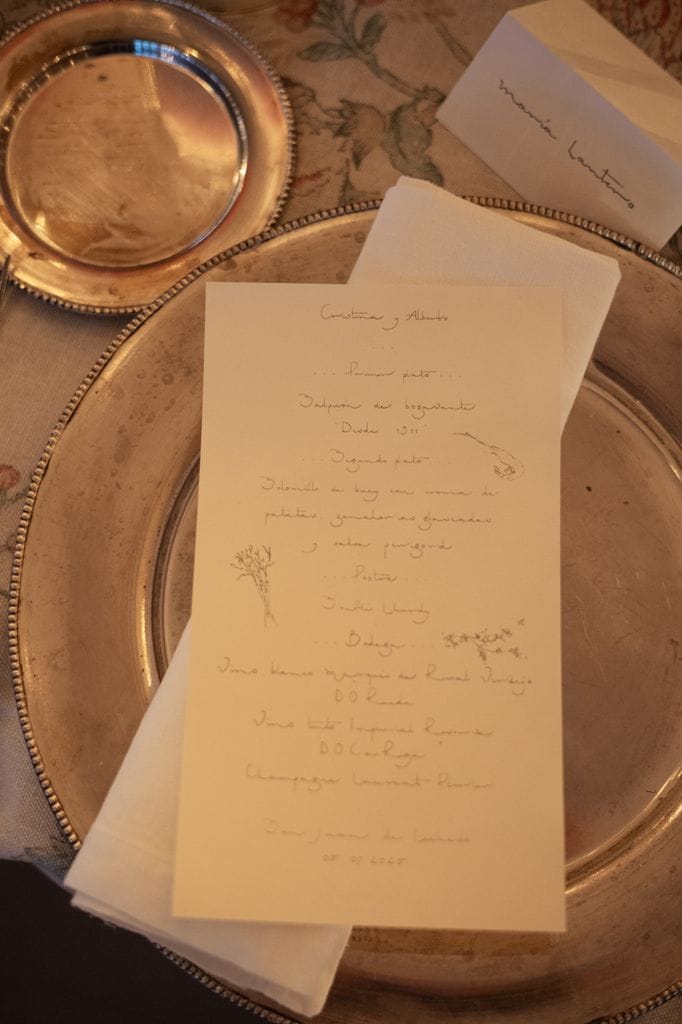 María Lantero
Cristina y Alberto
...
... Primer plato ...
Salpicón de bogavante
"Desde 1911"
... Segundo plato ...
Solomillo de buey con crema de
patatas, zanahorias glaseadas
y salsa perigord
... Postre ...
... Bodega ...
Vino blanco Marqués de Riscal Verdejo
D.O Rueda
Vino tinto Imperial Reserva
D.O.Ca Rioja
Champagne Laurent Perrier
Don Juan de